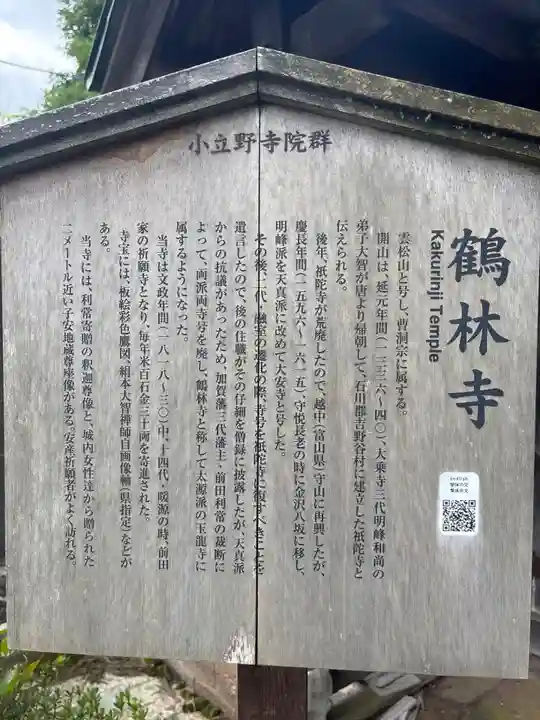 小立野寺院群
鶴林寺
Kakurinji Temple
雲松山と号し、曹洞宗に属する。
開山は、延元年間(一三三六~四〇)、大乗寺三代明峰和尚の
弟子大智が唐より帰朝して、石川郡吉野谷村に建立した祇陀寺と
伝えられる。
後年、祇陀寺が荒廃したので、越中(富山県)守山に再興したが、
慶長年間(一五九六~一六一五)、守悦長老の時に金沢八坂に移し、
明峰派を天真派に改めて大安寺と号した。
その後、二代・融室の遷化の際、寺号を祇陀寺に復すべきことを
遺言したので、後の住職がその仔細を僧録に披露したが、天真派
からの抗議があったため、加賀藩三代藩主・前田利常の裁断に
よって、両派両寺号を廃し、鶴林寺と称して太源派の玉龍寺に
属するようになった。
当寺は文政年間(一八一八~三〇)中、十四代・暖源の時、前田
家の祈願寺となり、毎年米百石金三十両を寄進された。
寺宝には、板絵彩色鷹図、絹本大智禅師自画像軸(県指定)などが
ある。
当寺には、利常寄贈の釈迦尊像と、城内女性達から贈られた
二メートル近い子安地蔵尊座像がある。安産祈願者がよく訪れる。